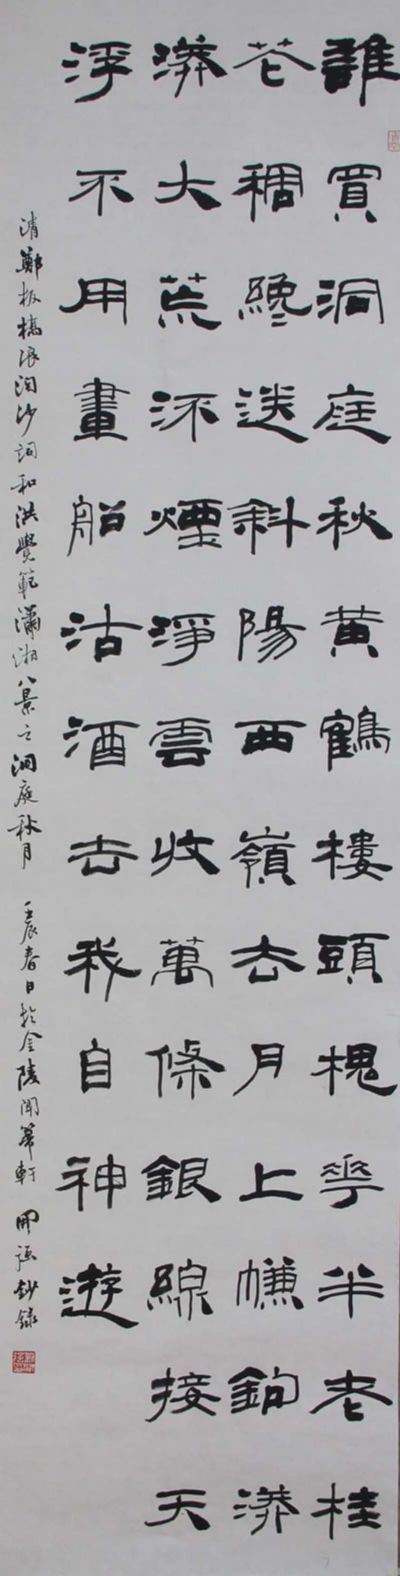 誰買洞庭秋黄鶴樓頭槐華半老桂
花稠纔送斜陽西嶺去月上㡘鉤漭
漭大荒流煙淨雲收萬條銀線接天
浮不用畫船沽酒去我自神遊
清鄭板橋浪淘沙詞和洪覺範瀟湘八景之洞庭秋月 壬辰春日於金陵聞軒 鈔錄